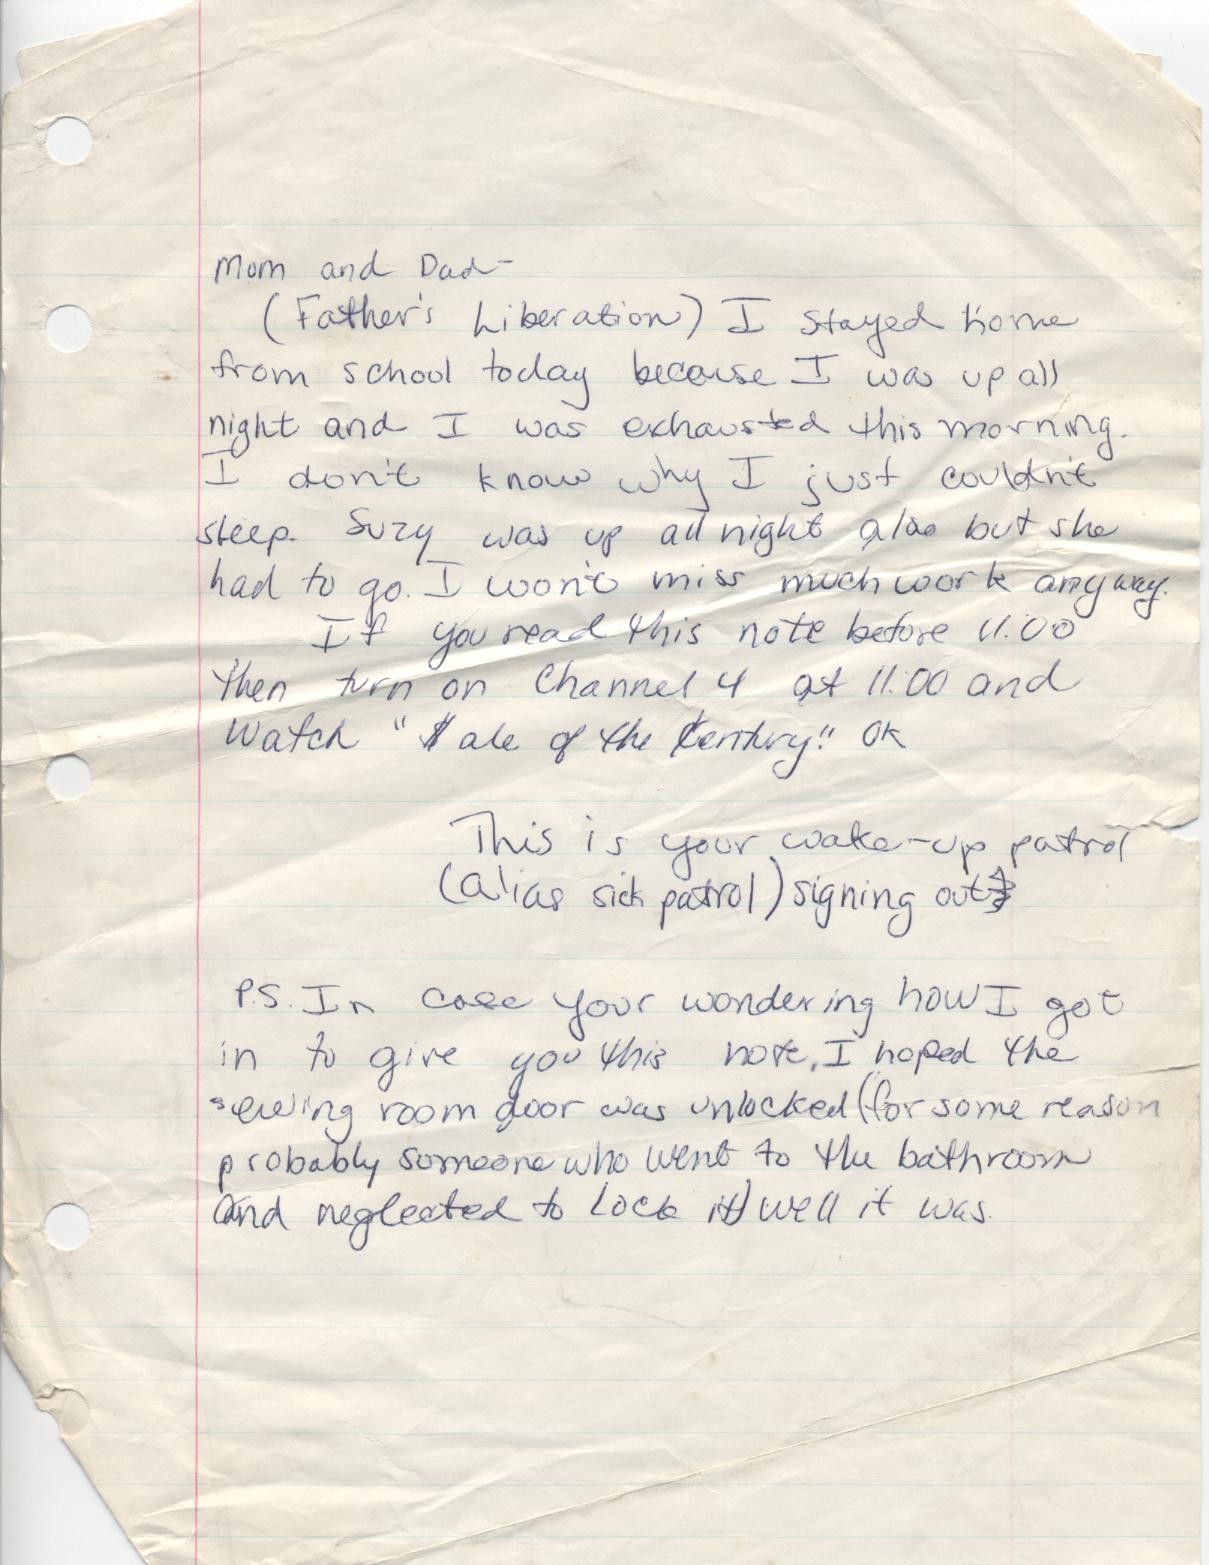 Mom and Dad-
(Father's Liberation) I stayed home
from school today because I was up all
night and I was exhausted this morning.
I don't know why I just couldn't
sleep. Suzy was up all night also but she
had to go. I won't miss much work anyway.
If you read this note before 11:00
then turn on Channel 4 at 11:00 and
watch "$ale of the ¢entury!" OK
This is your wake-up patrol
(alias sick patrol) signing out
P.S. In case your wondering how I got
in to give you this note, I hoped the
sewing room door was unlocked (for some reason
probably someone who went to the bathroom
and neglected to lock it) well it was.